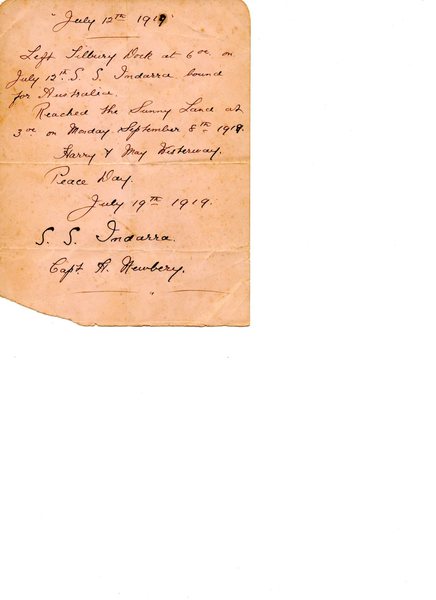 "July 12th 1919"
Left Tilbury Dock at 6 oc on
July 12th S. S. Indarra bound
for Australia.
Reached the Sunny Land at
3 oc on Monday September 8th 1919.
Harry & May Westerway.
Peace Day.
July 19th 1919.
S. S. Indarra.
Capt. H. Newbery.